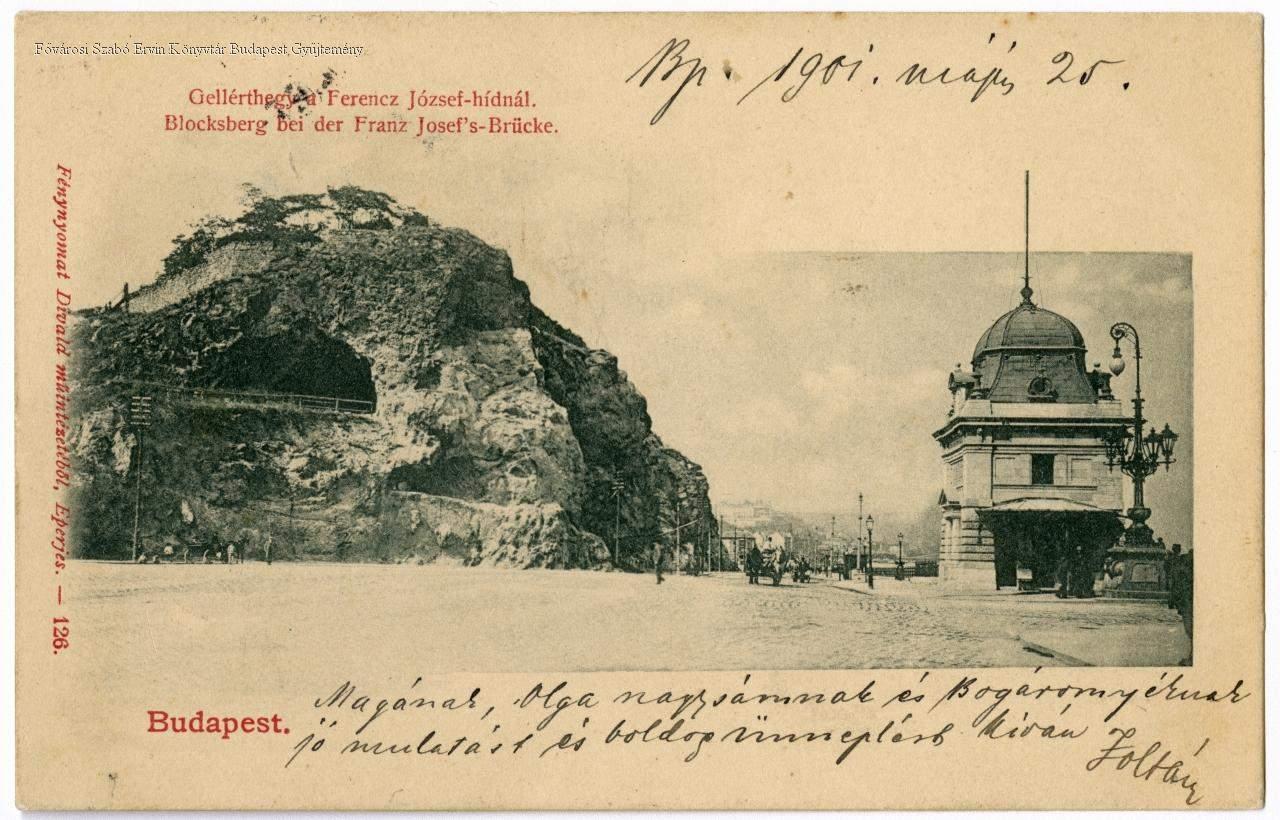 Fővárosi Szabó Ervin Könyvtár Budapest Gyűjtemény
Bp. 1901. május 25.
Gellérthegy a Ferencz József-hídnál.
Blocksberg bei der Franz Josef's-Brücke.
Fénynyomat Divald műintézetéből, Eperjes. — 126.
Budapest.
Magának, Olga nagysámnak és
jó mulatást és boldog ünneplést kiván
Zoltán